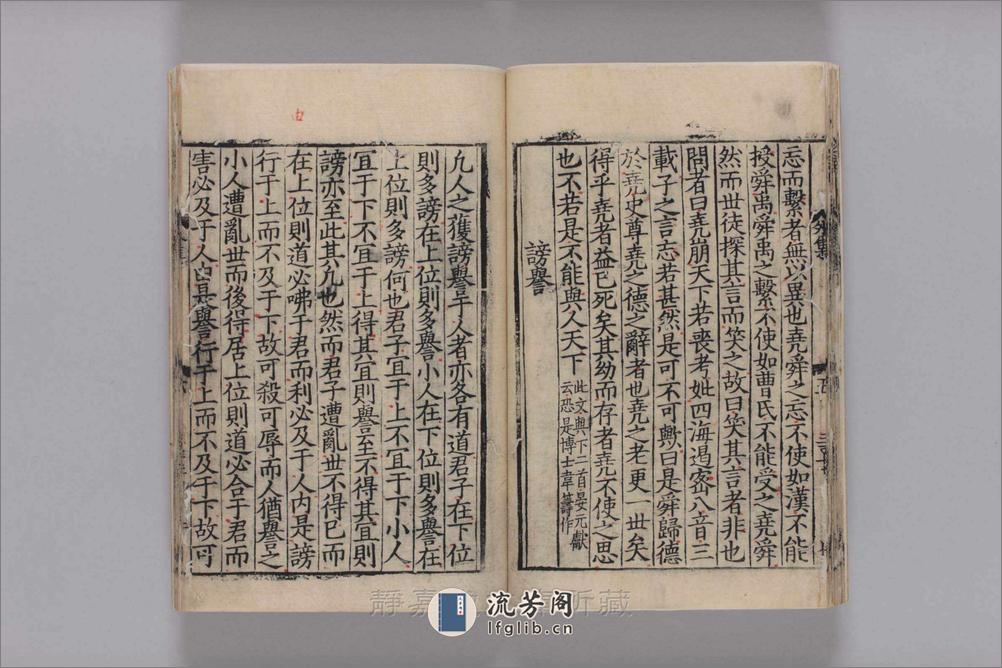 外集
忘而繫者無以異也堯舜之忘不使如漢不能
授舜禹舜禹之繫不使如曹氏不能受之堯舜
然而世徒探其言而笑之故曰笑其言者非也
問者曰堯崩天下若喪考妣四海遏密八音三
載子之言忘若甚然是可不可歟曰是舜歸德
於堯史尊堯之德之辭者也堯之老更 世矣
得乎堯者益已死矣其幼而存者堯不使之思
也不若是不能與人天下
此文與下一首晏元獻
云恐是博士韋籌作
謗譽
凢人之獲謗譽于人者亦各有道君子在下位
則多謗在上位則多譽小人在下位則多譽在
上位則多謗何也君子宜于上不宜于下小人
宜于下不宜于上得其宜則譽至不得其宜則
謗亦至此其凢也然而君子遭亂世不得已而
在上位則道必咈于君而利必及于人由是謗
行于上而不及于下故可殺可辱而人猶譽之
小人遭亂世而後得居上位則道必合于君而
害必及于人由是譽行于上而不及于下故可
靜嘉 所藏
流芳阁
lfglib.cn